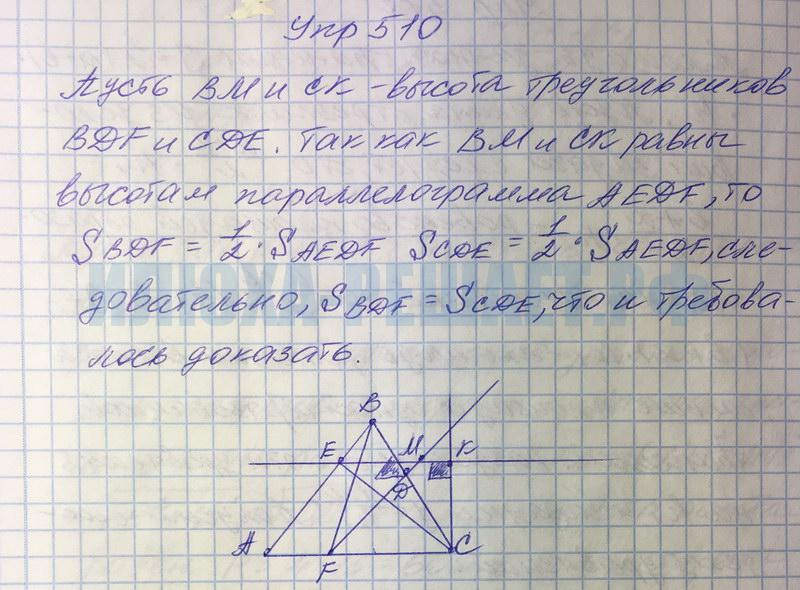 Упр 510
Пусть BM и CK - высота треугольников
BDF и CDE. Так как BM и CK равны
высотам параллелограмма AEDF, то
S BDF = 1/2 · S AEDF S CDE = 1/2 · S AEDF, сле-
довательно, S BDF = S CDE, что и требова-
лось доказать.
ИЛЮХА-РЕШАЕТ.РФ
B
E M K
D
A F C